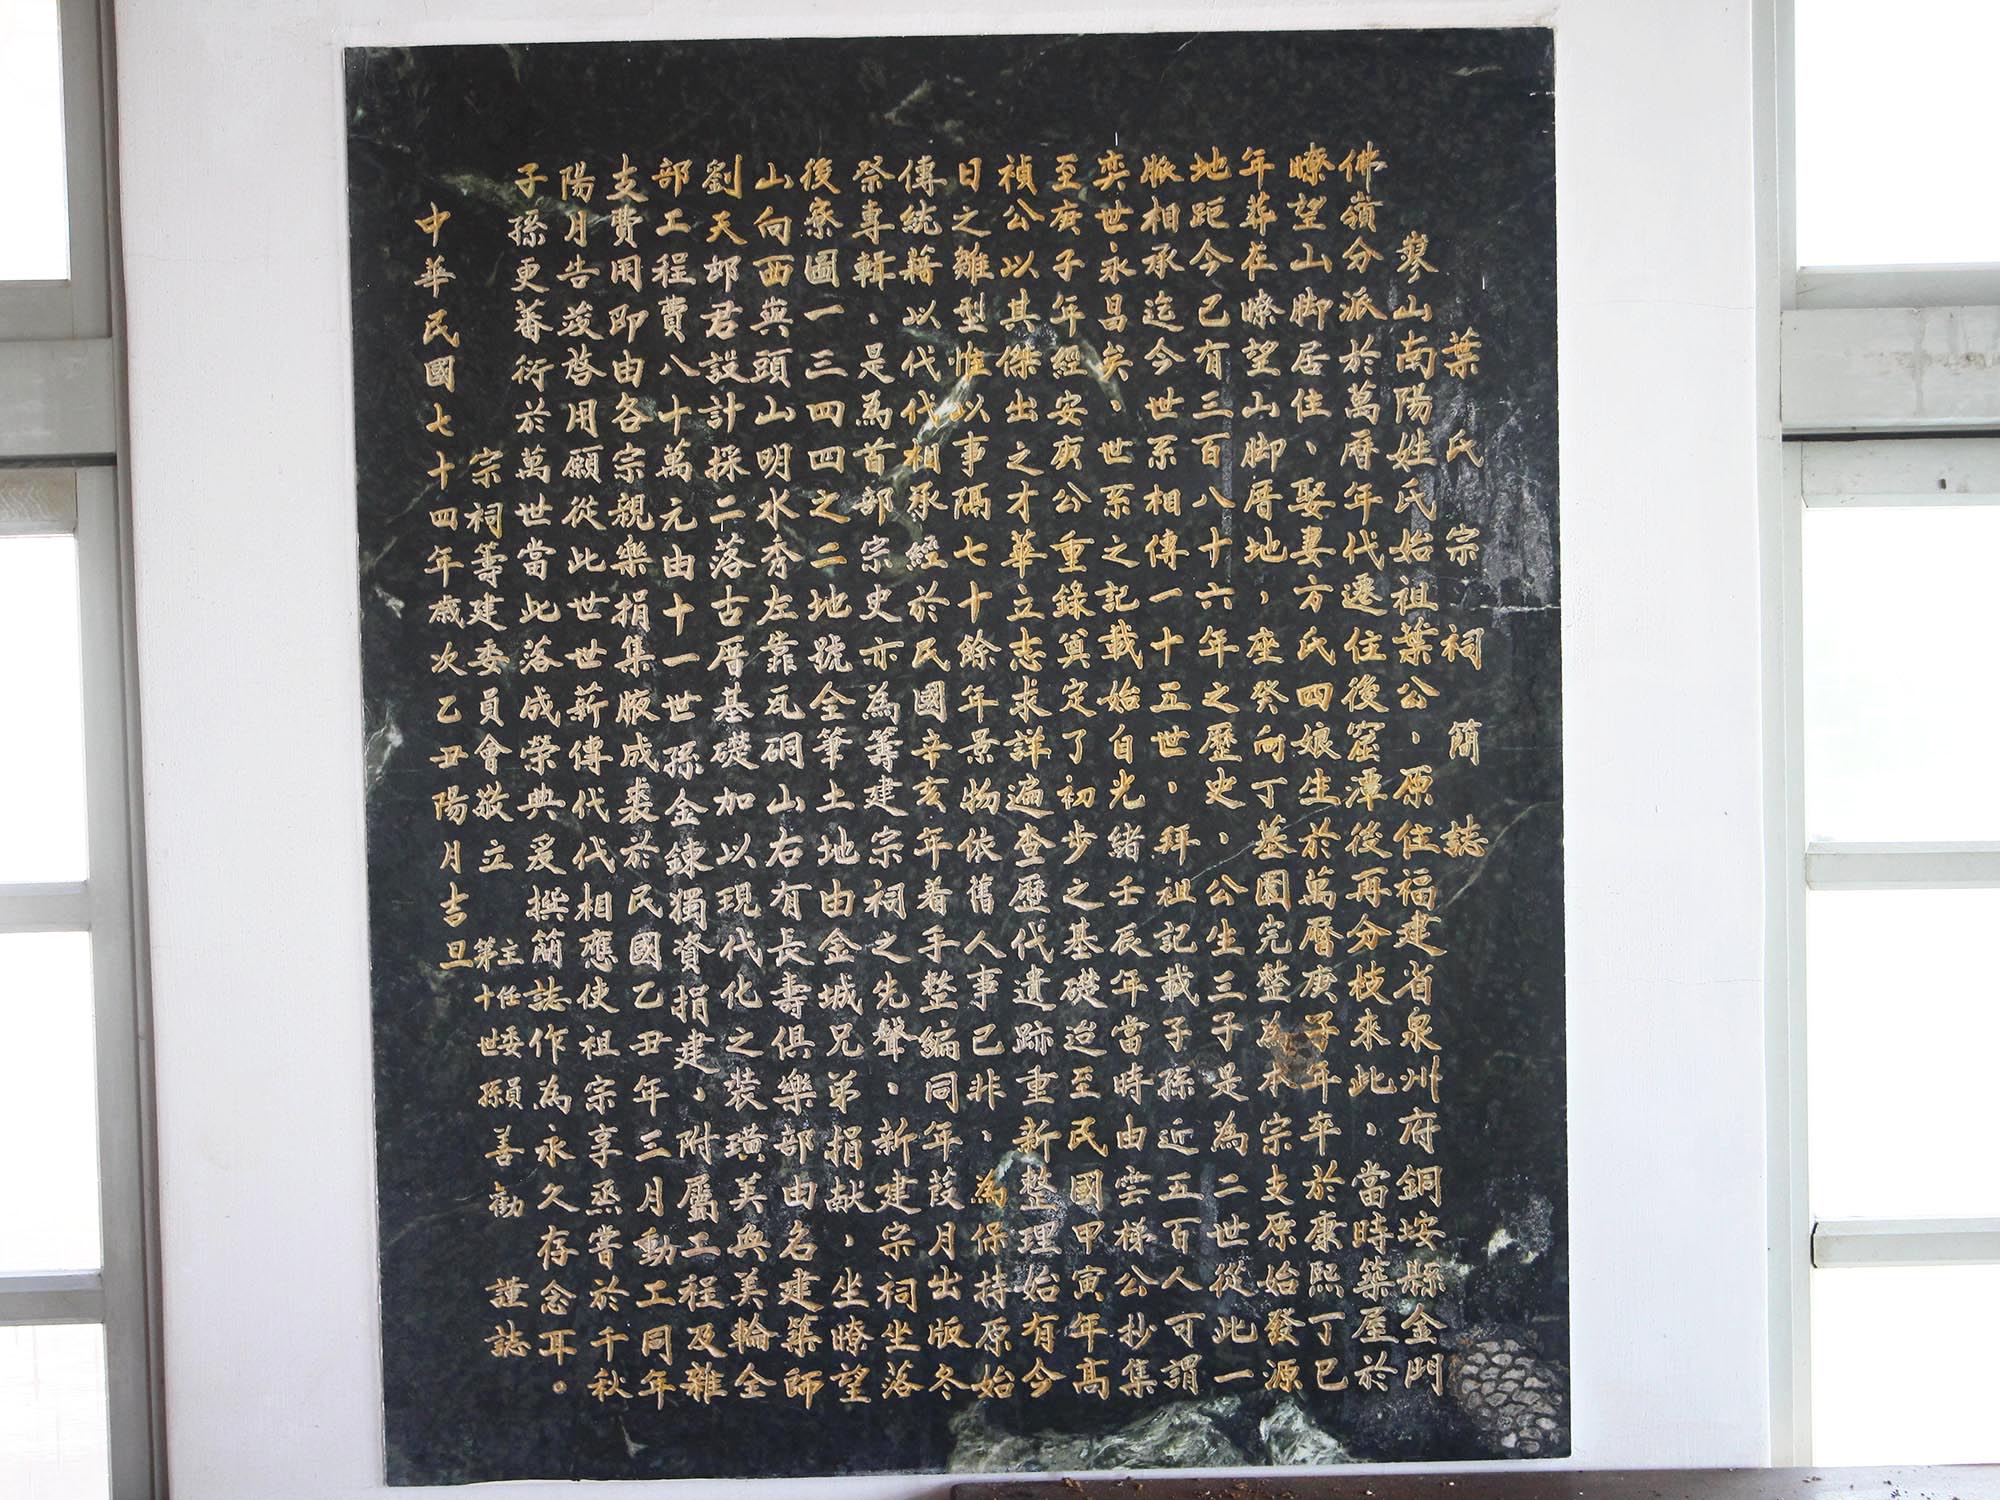 葉氏宗祠簡誌
寥山南陽姓氏始祖葉公、原住福建省泉州府銅垵縣金門
佛嶺分派於萬曆年代遷住後窟潭後再分枝來此、當時築屋於
瞭望山脚居住、娶妻方氏四娘生於萬曆庚子年卒於康熙丁巳
年葬在瞭望山脚厝地，座癸向丁墓園完整為本宗支原始發源
地距今已有三百八十六年之歷史，公生三子是為二世從此一
脈相承迄今世系相傳一十五世，拜祖記載子孫近五百人可謂
奕世永昌矣、世系之記載始自光緒壬辰年當時由雲梯公抄集
至庚子年經安庚公重錄奠定了初步之基礎迨至民國甲寅年高
禎公以其傑出之才華立志求詳遍查歷代遺跡重新整理始有今
日之雛型惟以事隔七十餘年景物依舊人事已非，為保持原始
傳統藉以代代相承經於民國辛亥年着手整編同年葭月出版冬
祭專輯、是為首部宗史亦為籌建宗祠之先聲，新建宗祠坐落
後寮圖一三四四之二地號全筆土地由金城兄弟捐献，坐瞭望
山向西與頭山明水秀左靠瓦硐山右有長壽俱樂部由名建築師
劉天邮君設計採二落古厝基礎加以現代化之裝璜美奐美輪全
部工程費八十萬元由十一世孫金鍊獨資捐建、附屬工程及雜
支費用即由各宗親樂捐集腋成裘於民國乙丑年三月動工同年
陽月告竣啓用願從此世世薪傳代代相應使祖宗享烝嘗於千秋
子孫更蕃衍於萬世當此落成榮典爰撰簡誌作為永久存念耳。
宗祠籌建委員會敬立
主任委員
第十世孫善勸謹誌
中華民國七十四年歲次乙丑陽月吉旦